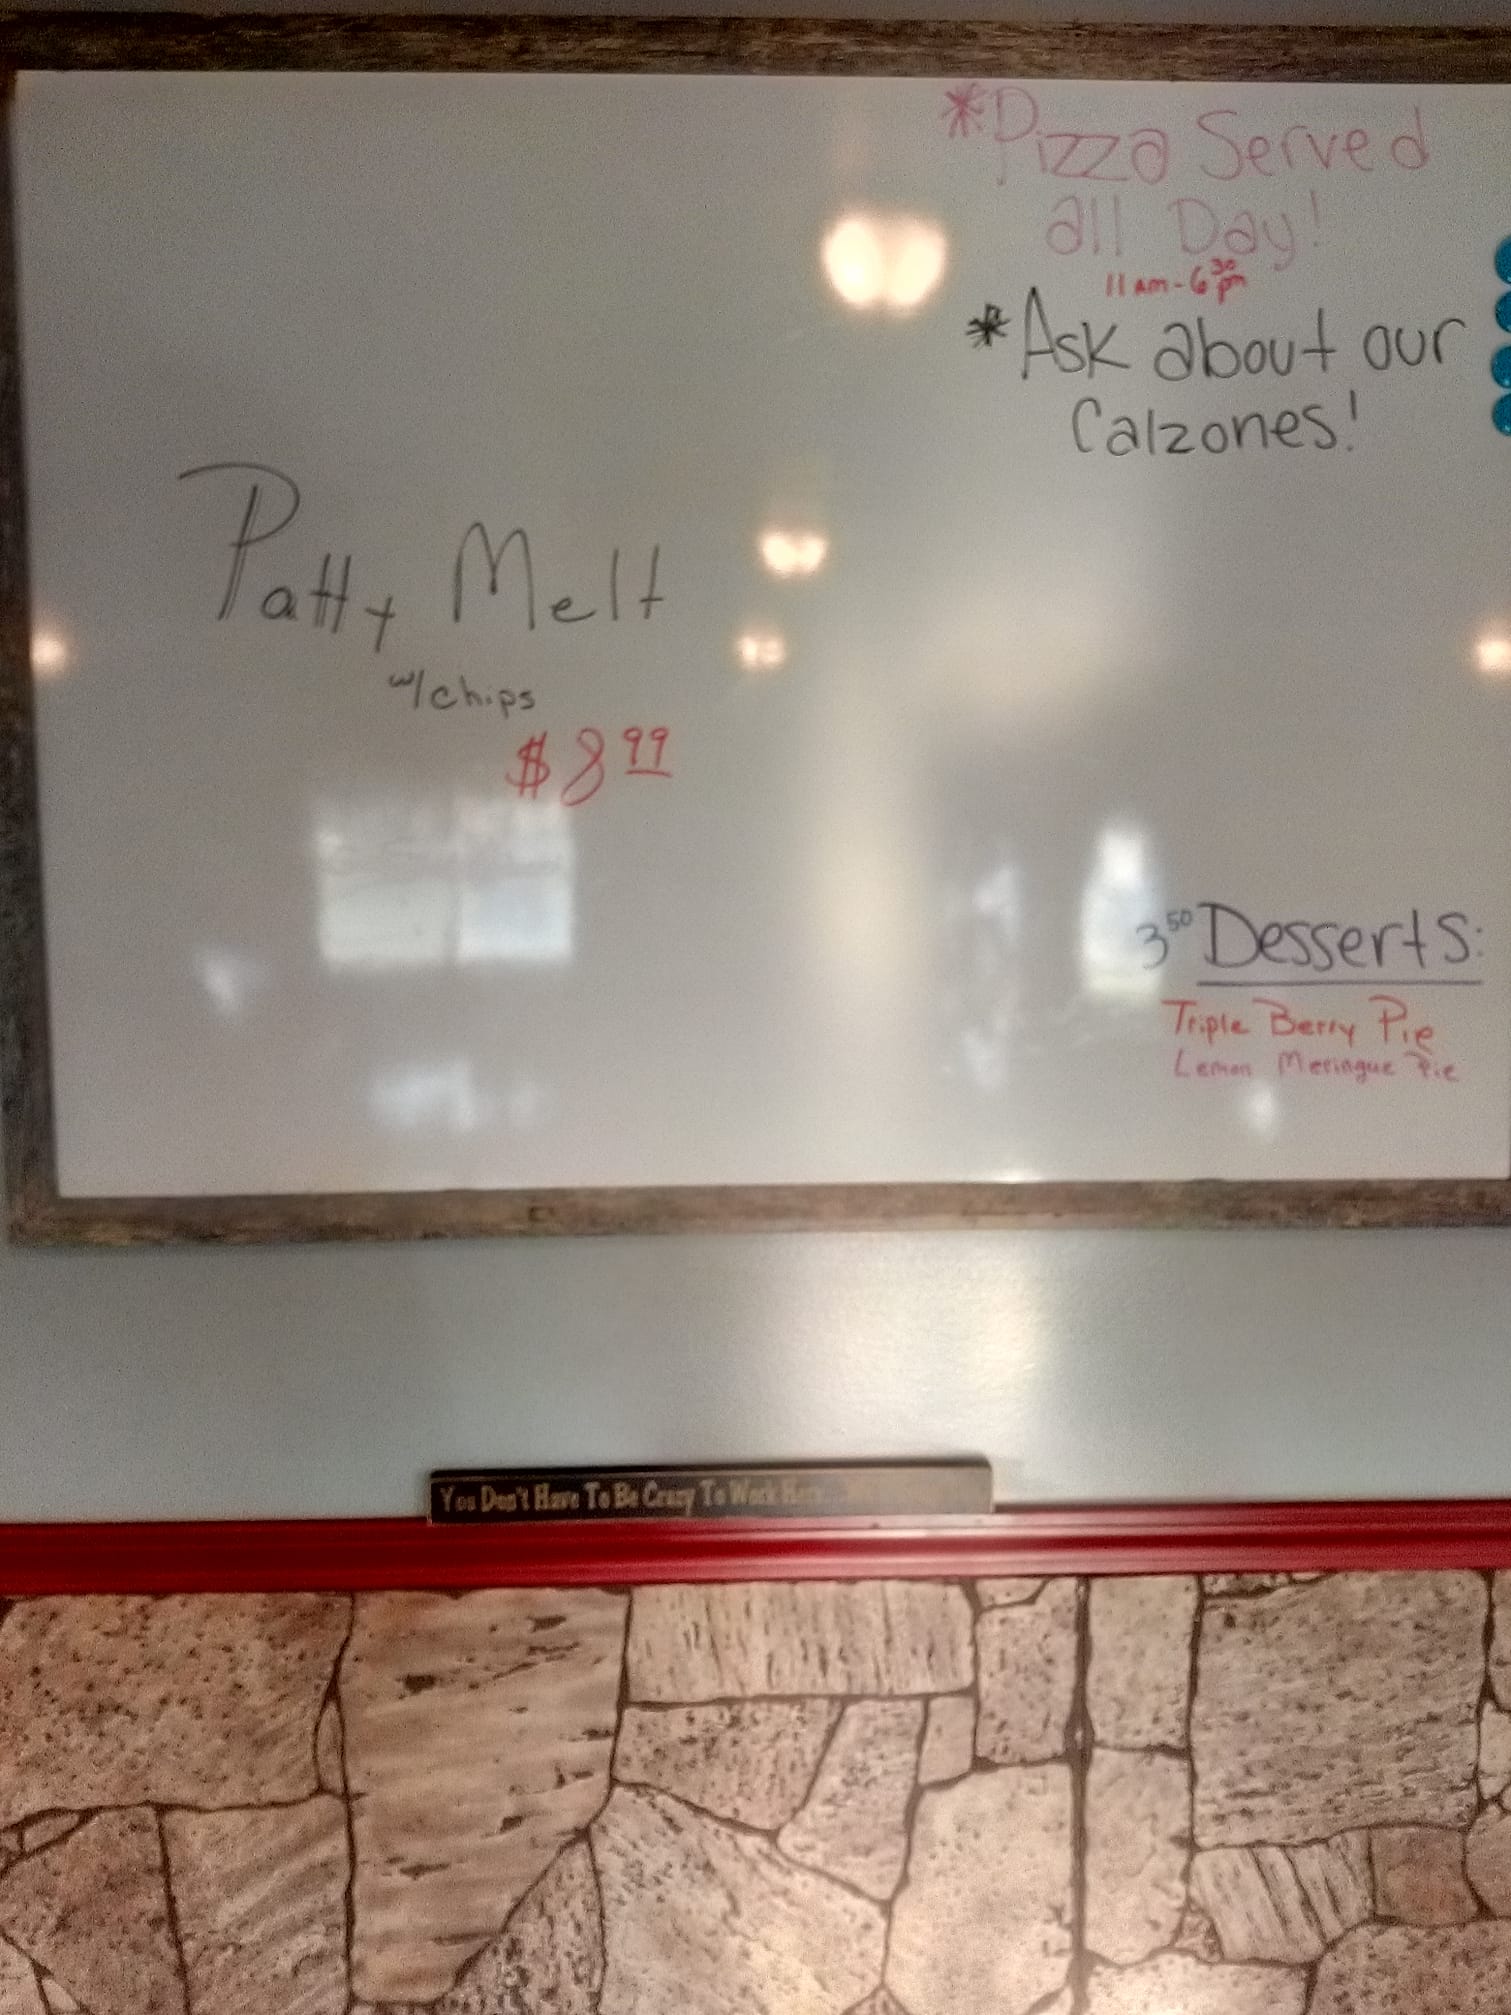 *Pizza Served
all Day!
11 am - 6 30 pm
*Ask about our
Calzones!
Patty Melt
w/chips
$8 99
3 50 Desserts:
Triple Berry Pie
Lemon Meringue Pie
You Don't Have To Be Crazy To Work Here...